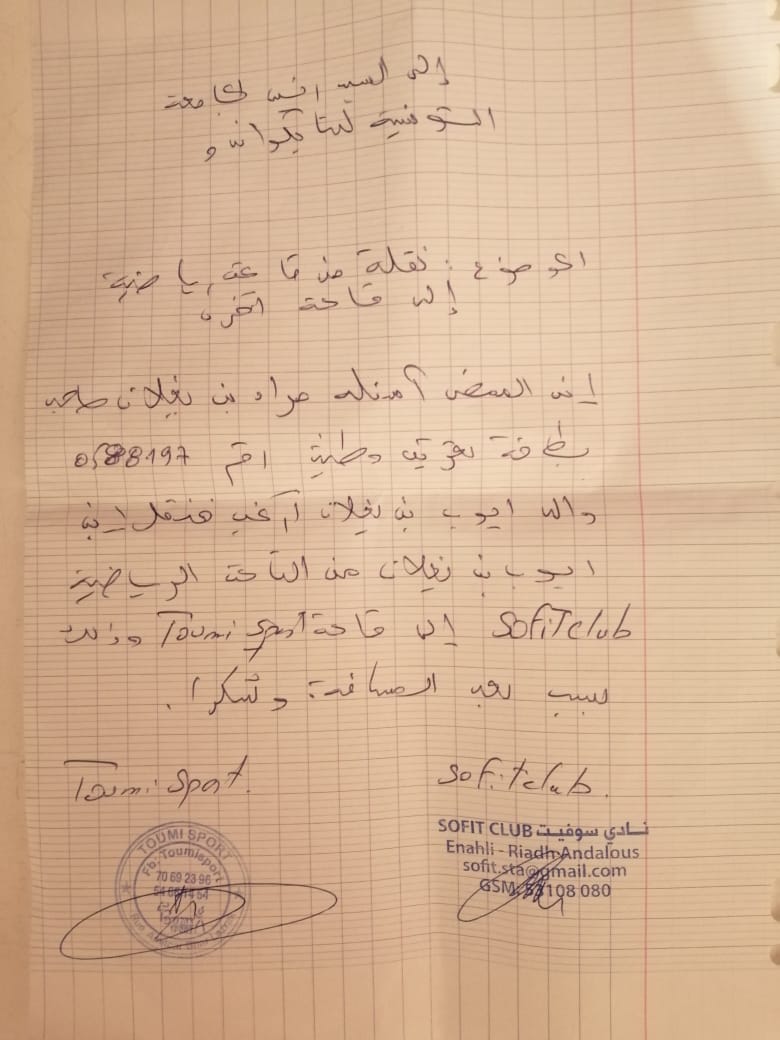 إلى السيد رئيس الجامعة
التونسية للتايكواندو
الموضوع : نقلة من قاعة رياضية
إلى قاعة أخرى
إني الممضي أسفله مراد بن نغيلان صاحب
بطاقة تعريف وطنية رقم 0588197
والد ايوب بن نغيلان أرغب في نقل إبني
ايوب بن نغيلان من القاعة الرياضية
SofiTclub إلى قاعة Toumi Sport وذلك
بسبب بعد المسافة وشكرا.
Sofitclub.
Toumi Sport.
SOFIT CLUB نادي سوفيت
Enahli - Riadh Andalous
sofit.sta@gmail.com
GSM: 53108 080
TOUMI SPORT
Fb: Toumisport
70 69 23 96